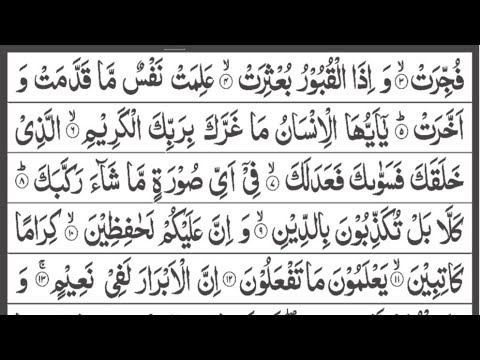 فُجِّرَتْ ۙ﴿۳﴾ وَ اِذَا الْقُبُوْرُ بُعْثِرَتْ ۙ﴿۴﴾ عَلِمَتْ نَفْسٌ مَّا قَدَّمَتْ وَ
اَخَّرَتْ ؕ﴿۵﴾ یٰۤاَیُّهَا الْاِنْسَانُ مَا غَرَّكَ بِرَبِّكَ الْكَرِیْمِ ۙ﴿۶﴾ الَّذِیْ
خَلَقَكَ فَسَوّٰىكَ فَعَدَلَكَ ۙ﴿۷﴾ فِیْۤ اَیِّ صُوْرَةٍ مَّا شَآءَ رَكَّبَكَ ؕ﴿۸﴾
كَلَّا بَلْ تُكَذِّبُوْنَ بِالدِّیْنِ ۙ﴿۹﴾ وَ اِنَّ عَلَیْكُمْ لَحٰفِظِیْنَ ۙ﴿۱۰﴾ كِرَامًا
كَاتِبِیْنَ ۙ﴿۱۱﴾ یَعْلَمُوْنَ مَا تَفْعَلُوْنَ ﴿۱۲﴾ اِنَّ الْاَبْرَارَ لَفِیْ نَعِیْمٍ ۚ﴿۱۳﴾ وَ